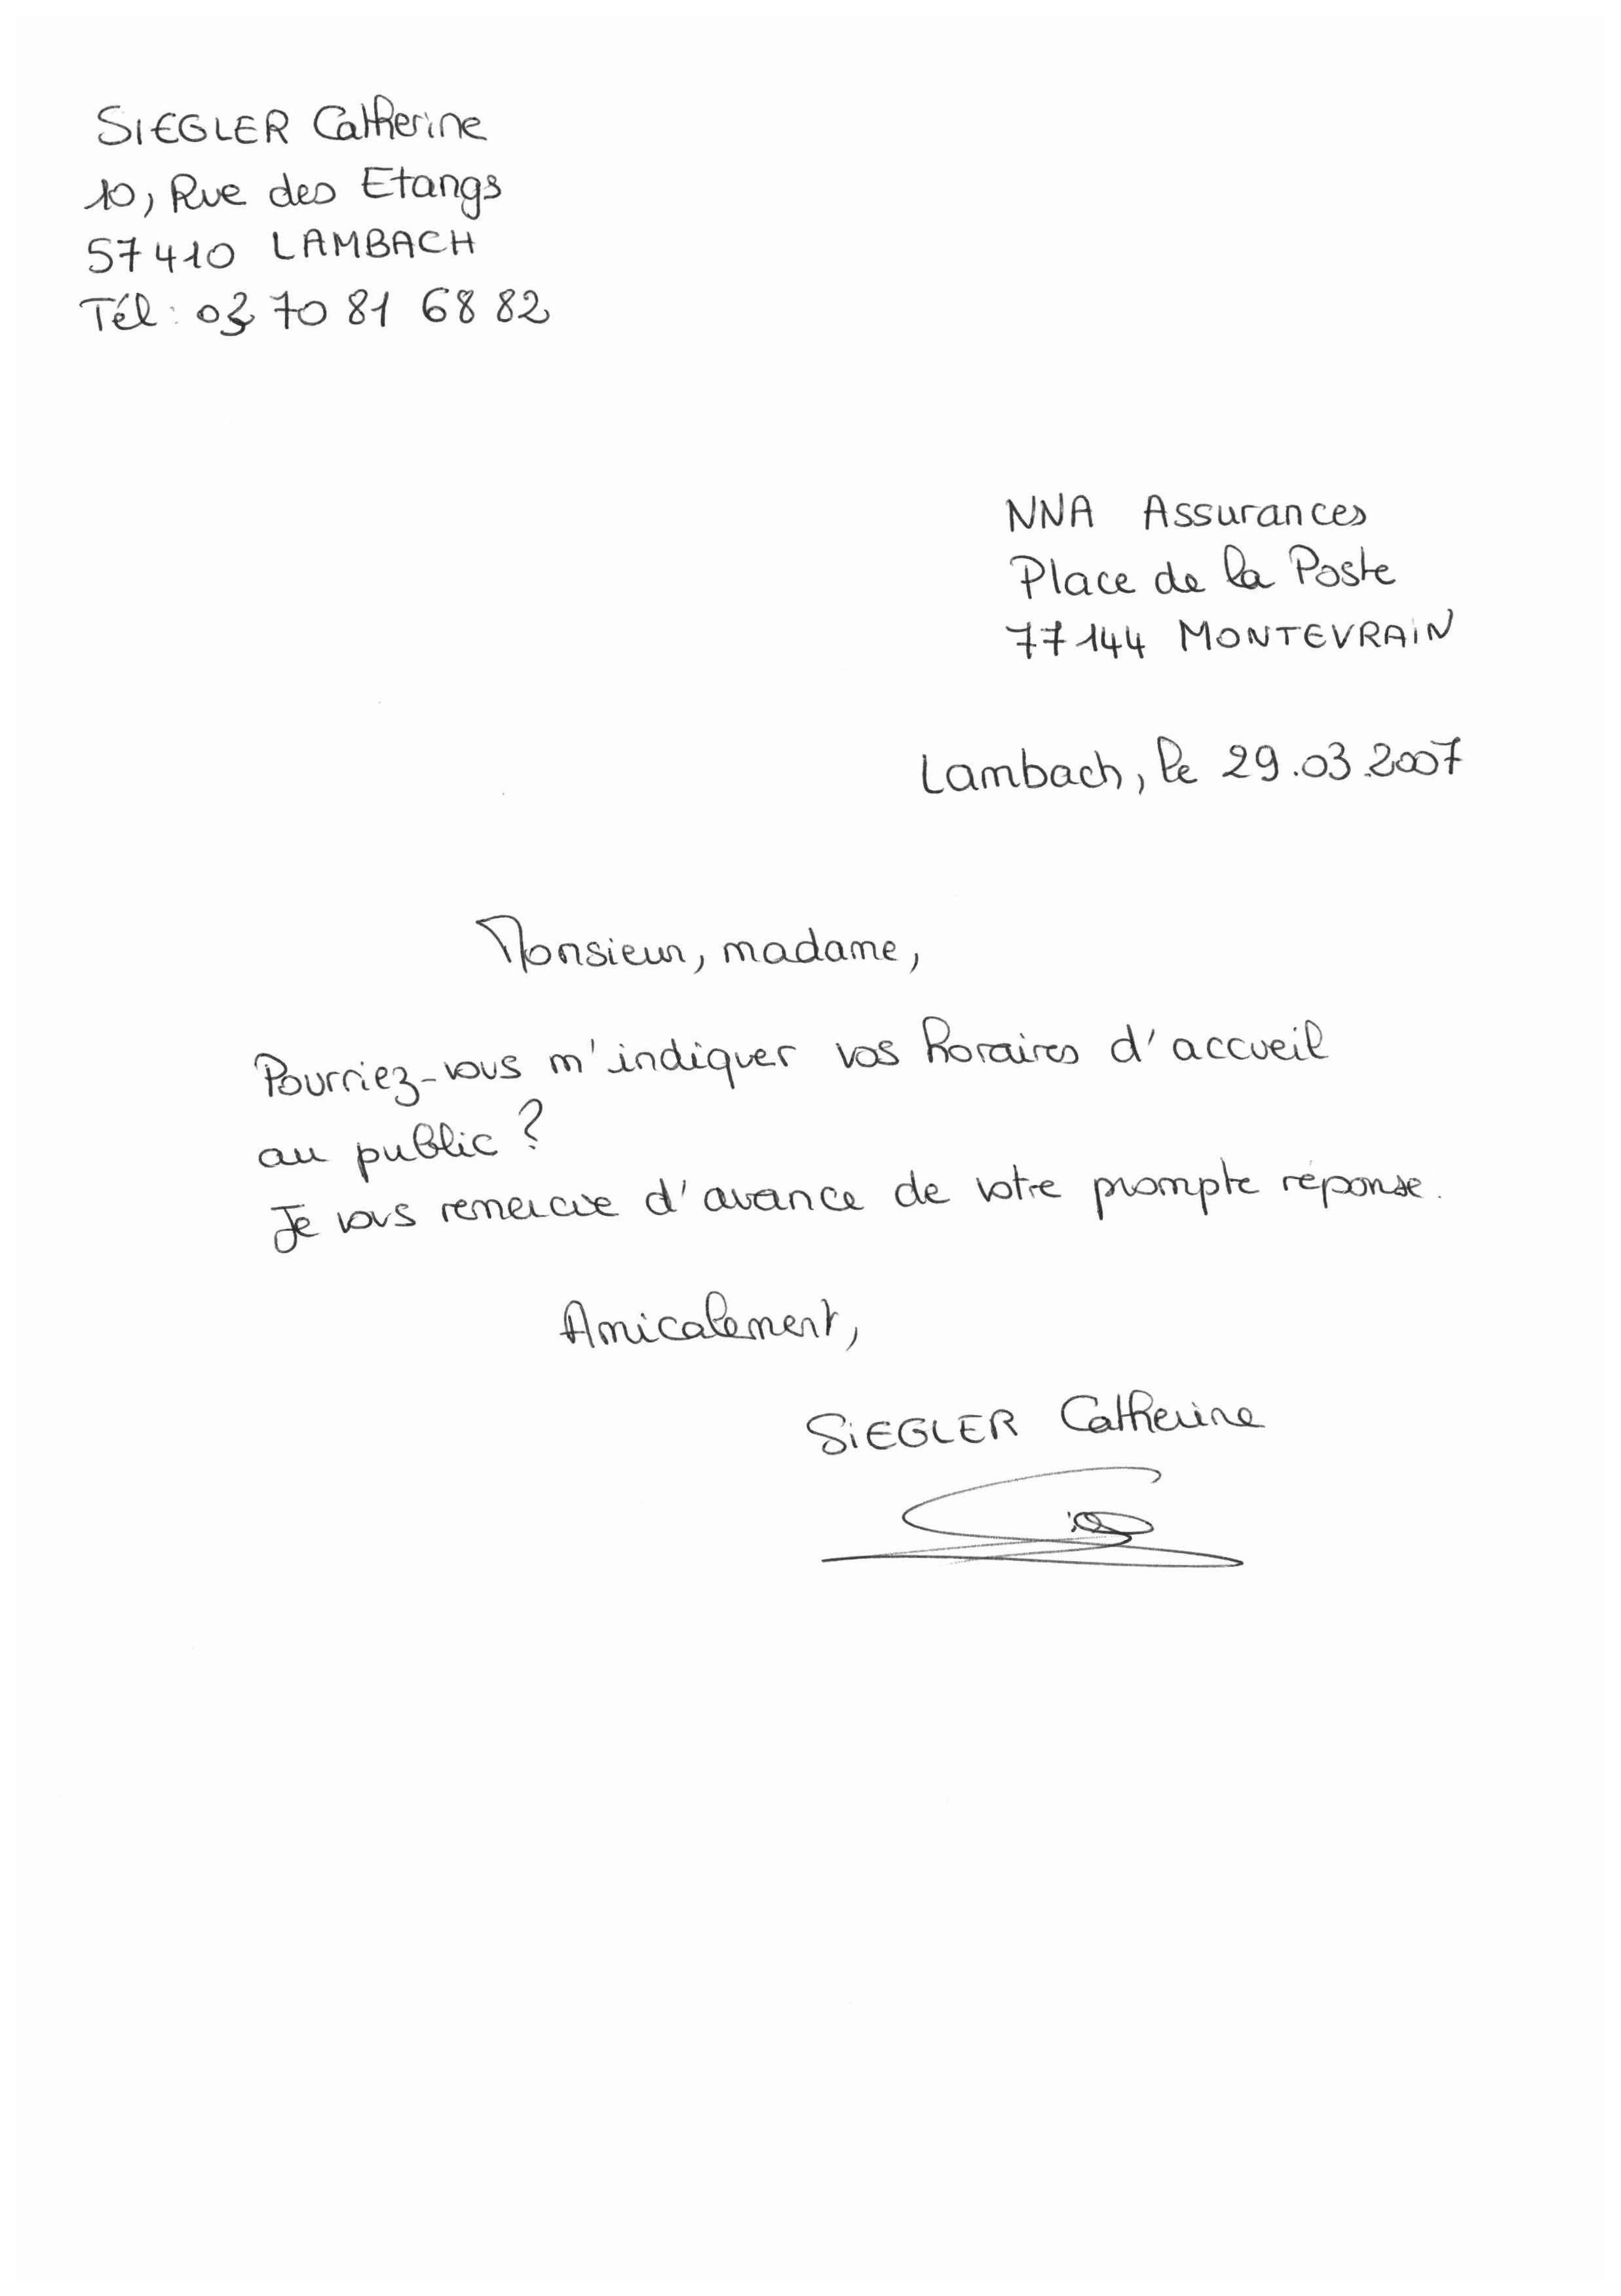 SIEGLER Catherine
10, Rue des Etangs
57410 LAMBACH
Tél : 03 70 81 68 82
NNA Assurances
Place de la Poste
77144 MONTEVRAIN
Lambach, le 29.03.2007
Monsieur, madame,
Pourriez-vous m'indiquer vos horaires d'accueil
au public ?
Je vous remercie d'avance de votre prompte réponse.
Amicalement,
SIEGLER Catherine